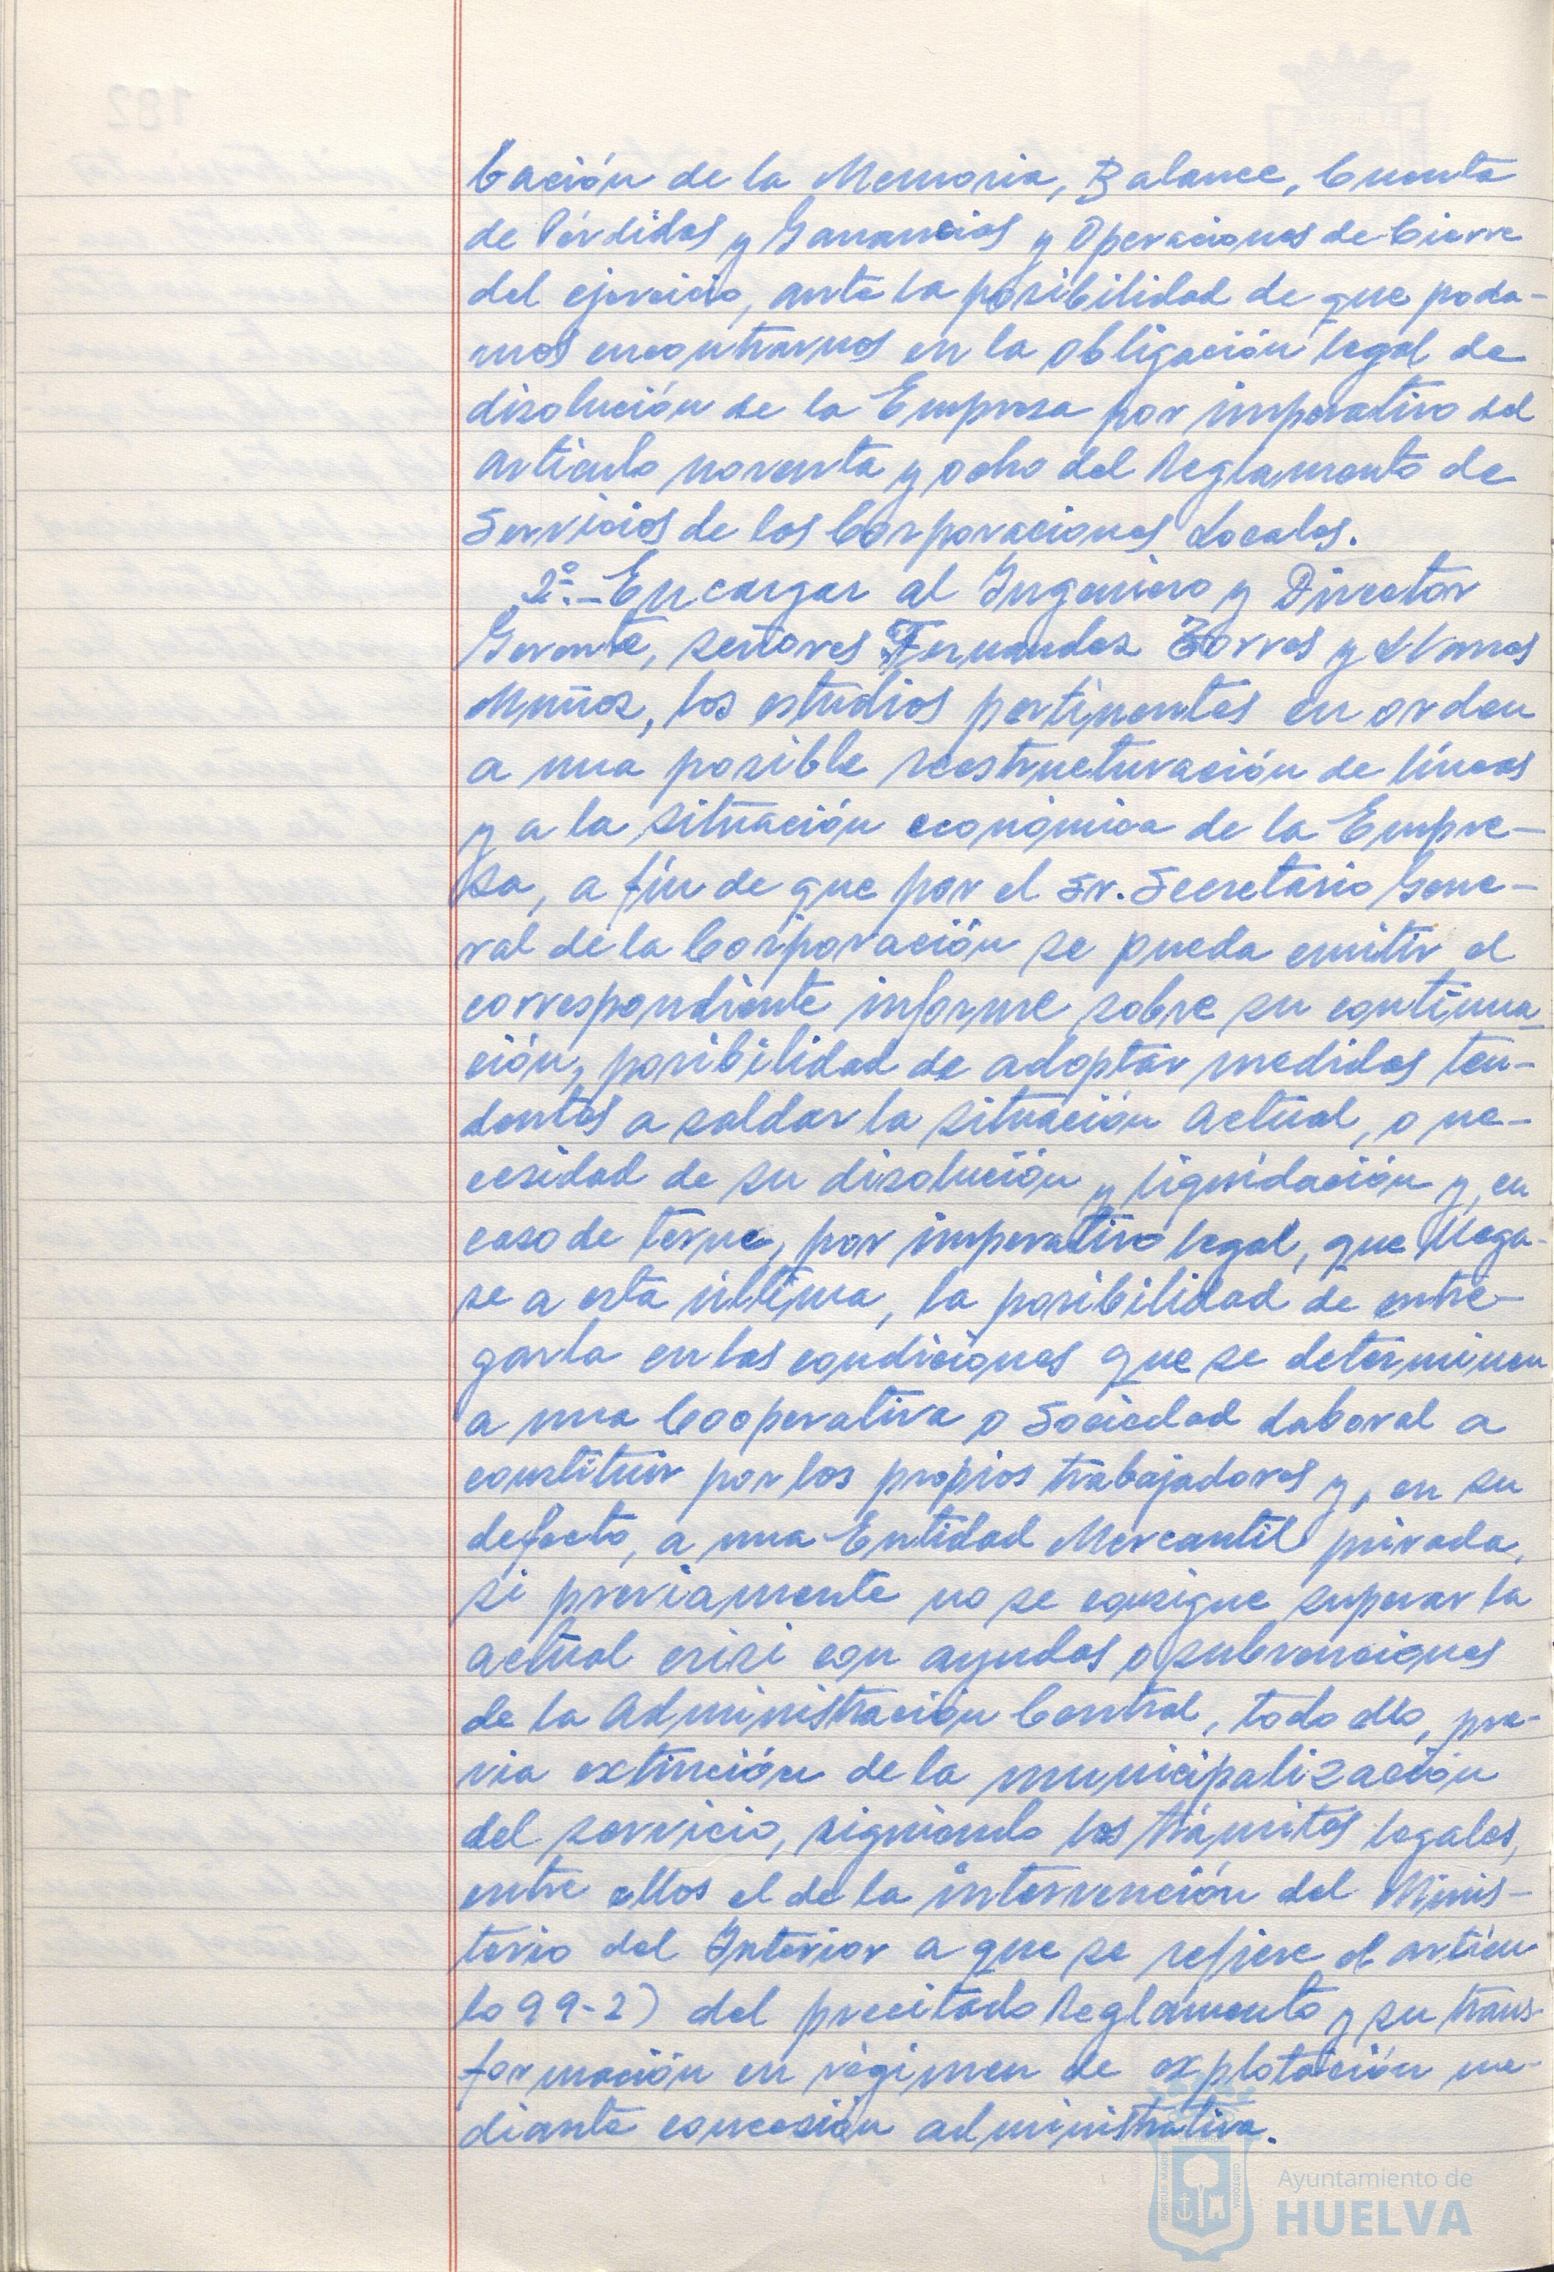 bación de la Memoria, Balance, Cuenta
de Pérdidas y Ganancias y Operaciones de Cierre
del ejercicio, ante la posibilidad de que poda-
mos encontrarnos en la obligación legal de
disolución de la Empresa por imperativo del
artículo noventa y ocho del Reglamento de
Servicios de las Corporaciones Locales.
2º.- Encargar al Ingeniero y Director
Gerente, señores Fernandez Torres y Navas
Muñoz, los estudios pertinentes en orden
a una posible reestructuración de líneas
y a la situación económica de la Empre-
sa, a fin de que por el Sr. Secretario Gene-
ral de la Corporación se pueda emitir el
correspondiente informe sobre su continua-
ción, posibilidad de adoptar medidas ten-
dentes a saldar la situación actual, o ne-
cesidad de su disolución y liquidación y, en
caso de por imperativo legal, que llega-
se a esta última, la posibilidad de entre-
garla en las condiciones que se determinen
a una Cooperativa o Sociedad Laboral a
constituir por los propios trabajadores y, en su
defecto, a una Entidad Mercantil privada,
si previamente no se consigue superar la
actual crisi con ayudas o subvenciones
de la Administración Central, todo ello, pre-
via extinción de la municipalización
del servicio, siguiendo los trámites legales,
entre ellos el de la intervención del Minis-
terio del Interior a que se refiere el artícu
lo 99-2) del precitado Reglamento y su trans-
formación en régimen de explotación me-
diante concesión administrativa.
Ayuntamiento de
HUELVA